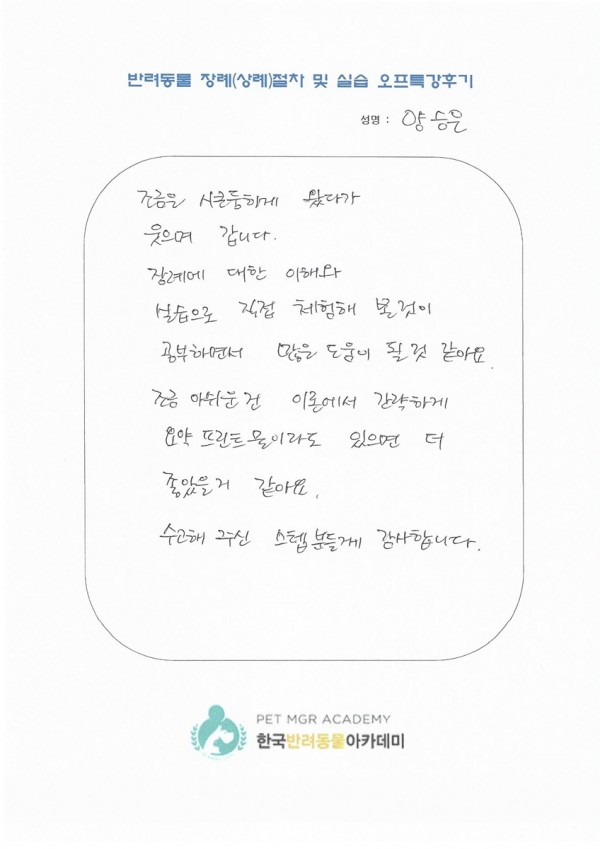 반려동물 장례(상례)절차 및 실습 오프특강후기
성명 : 양승은
조금은 시큰둥하게 왔다가
웃으며 갑니다.
장례에 대한 이해와
실습으로 직접 체험해 본것이
공부하면서 많은 도움이 될것 같아요.
조금 아쉬운건 이론에서 간략하게
요약 프린트물이라도 있으면 더
좋았을거 같아요.
수고해 주신 스텝분들게 감사합니다.
PET MGR ACADEMY
한국반려동물아카데미